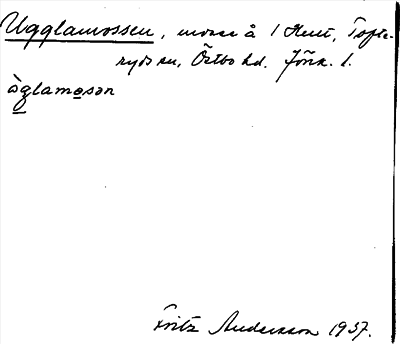 Ugglamossen, mosse å 1 Hult, Tofte-
ryds sn, Östbo hd. Jönk. l.
ò̀glamosən
Fritz Andersson 1937.